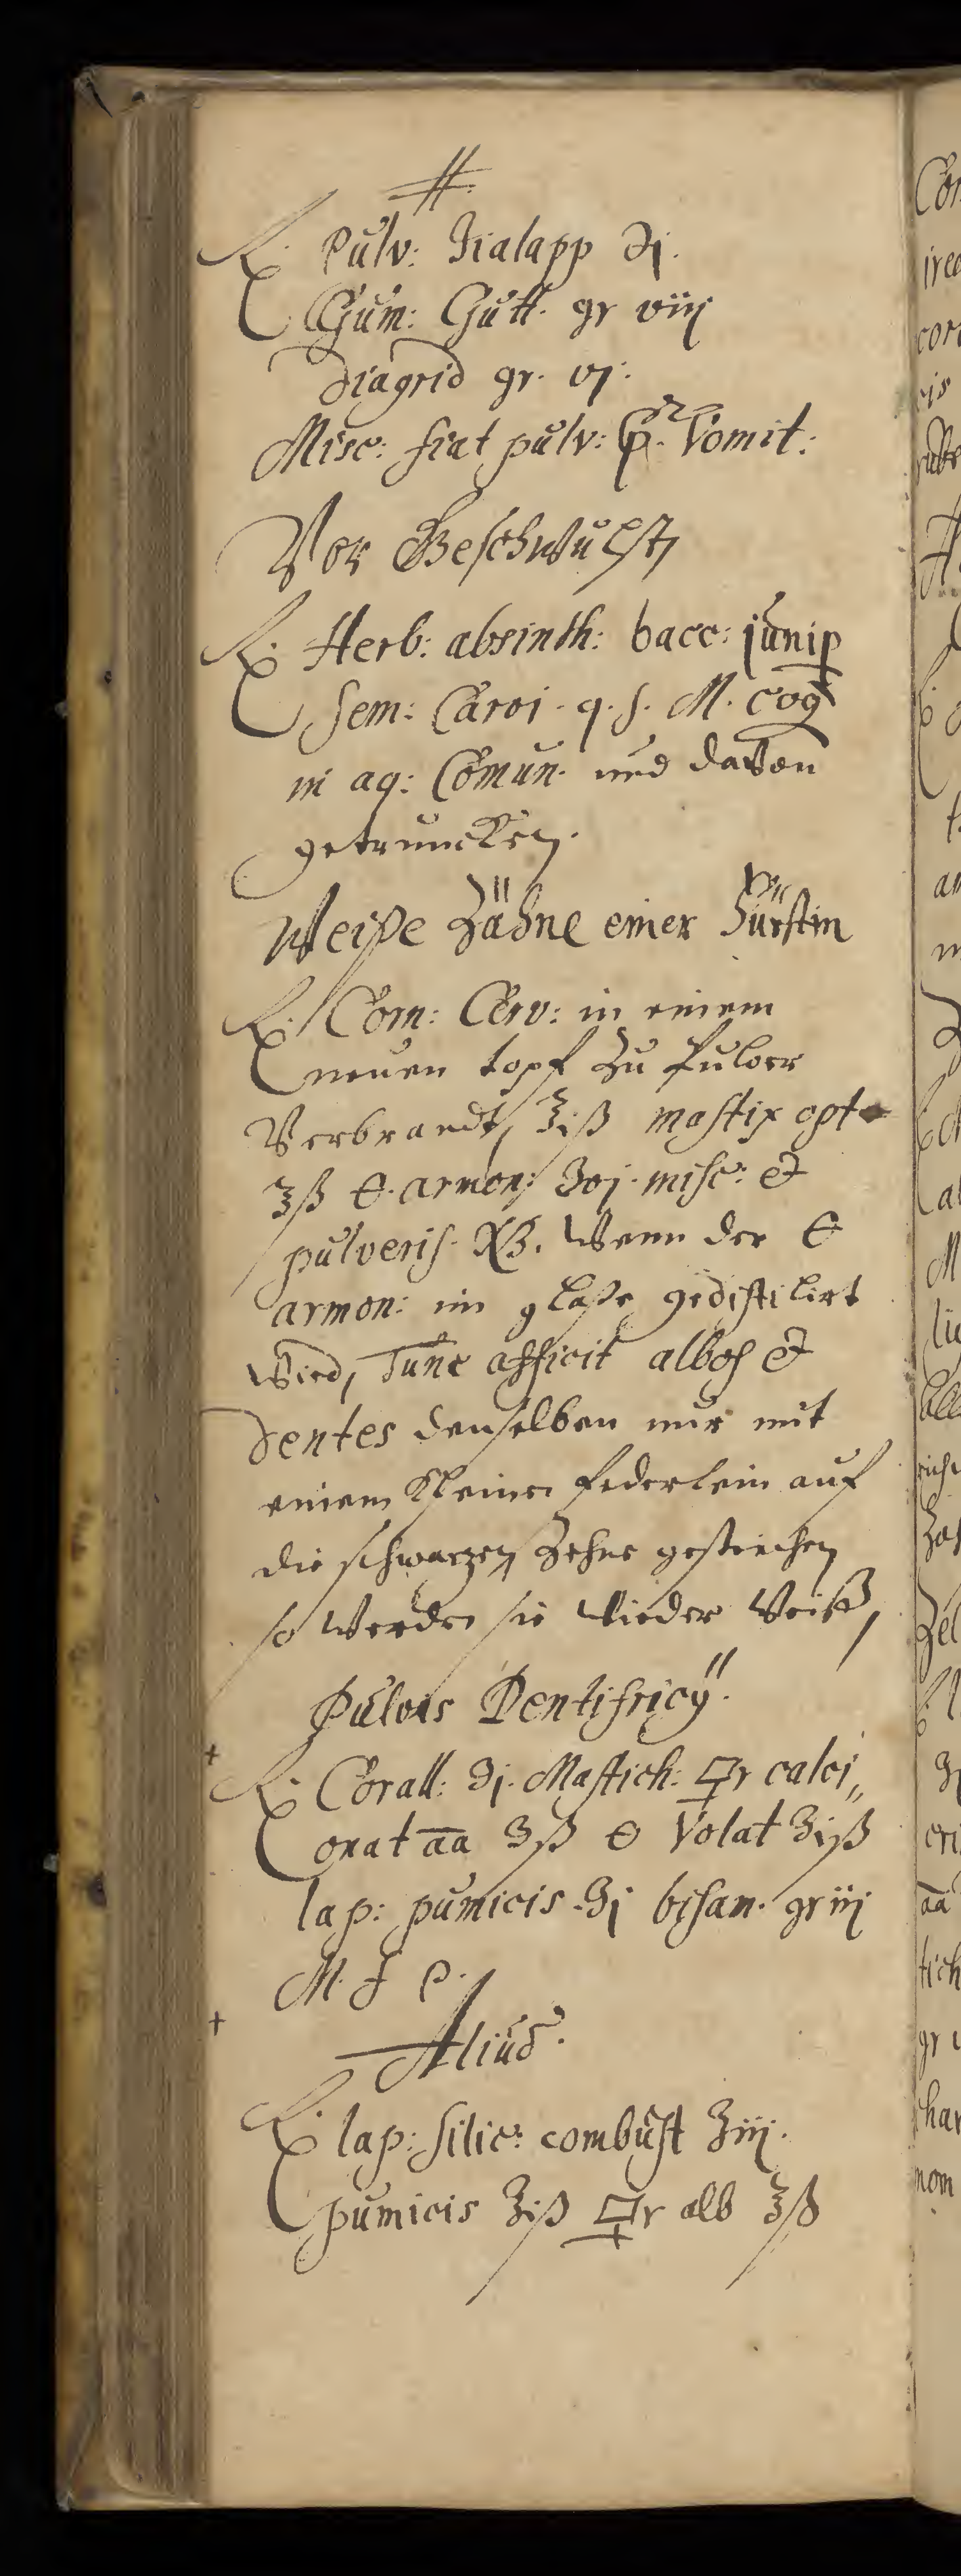 #
℞. Pulv: Jialapp ℈j.
Gum: Gutt. gr viij
diagrid gr. vj.
Misc: fiat pulv: p. Vomit:
Vor Geschwulst
℞. Herb: absinth: bacc: junip
sem: Carvi. q. s. M. coq
in aq: Comun. und davon
getruncken.
Weiße Zähne einer Fürstin
℞. Corn: Cerv: in einem
neuen topf zu Pulver
Verbrandt, ʒiß mastix opt
ʒß 🜔. armon: misc: &
pulveris. NB. Wenn der 🜔
armon: im glaße gedistilirt
wird, Tunc afficit albos &
dentes denselben nur mit
einem Kleinen federlein auf
die schwarzen Zehne gestrichen
so werden sie wieder Weiß,
Pulvis Dentifricÿ.
+ ℞. Corall: ʒj. Mastich: 🜿r calci„
onat āā ʒß 🜔 Volat ʒiß
lap: pumicis ʒj bisam. gr iij
M. f P.
+ Aliud.
℞. lap: silic: combust ʒiij.
pumicis ʒiß 🜿r alb ʒß